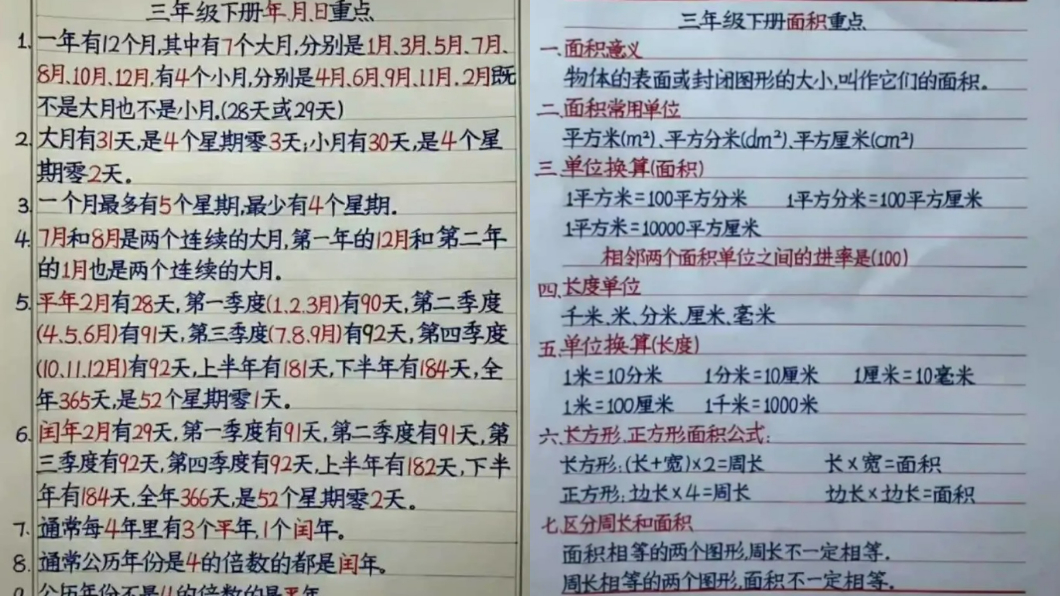 三年级下册年、月、日重点
1. 一年有12个月,其中有7个大月,分别是1月、3月、5月、7月、
8月、10月、12月,有4个小月,分别是4月、6月、9月、11月. 2月既
不是大月也不是小月.(28天或29天)
2. 大月有31天,是4个星期零3天;小月有30天,是4个星
期零2天。
3. 一个月最多有5个星期,最少有4个星期.
4. 7月和8月是两个连续的大月,第一年的12月和第二年
的1月也是两个连续的大月。
5. 平年2月有28天,第一季度(1.2.3月)有90天,第二季度
(4.5.6月)有91天,第三季度(7.8.9月)有92天,第四季度
(10.11.12月)有92天,上半年有181天,下半年有184天,全
年365天,是52个星期零1天。
6. 闰年2月有29天,第一季度有91天,第二季度有91天,第
三季度有92天,第四季度有92天,上半年有182天,下半
年有184天,全年366天,是52个星期零2天。
7. 通常每4年里有3个平年,1个闰年。
8. 通常公历年份是4的倍数的都是闰年。
9. 公历年份不是4的倍数的是平年
三年级下册面积重点
一、面积意义
物体的表面或封闭图形的大小,叫作它们的面积.
二、面积常用单位
平方米(m²)、平方分米(dm²)、平方厘米(cm²)
三、单位换算(面积)
1平方米=100平方分米 1平方分米=100平方厘米
1平方米=10000平方厘米
相邻两个面积单位之间的进率是(100)
四、长度单位
千米、米、分米、厘米、毫米
五、单位换算(长度)
1米=10分米 1分米=10厘米 1厘米=10毫米
1米=100厘米 1千米=1000米
六、长方形、正方形面积公式:
长方形:(长+宽)×2=周长 长×宽=面积
正方形:边长×4=周长 边长×边长=面积
七、区分周长和面积
面积相等的两个图形,周长不一定相等.
周长相等的两个图形,面积不一定相等.